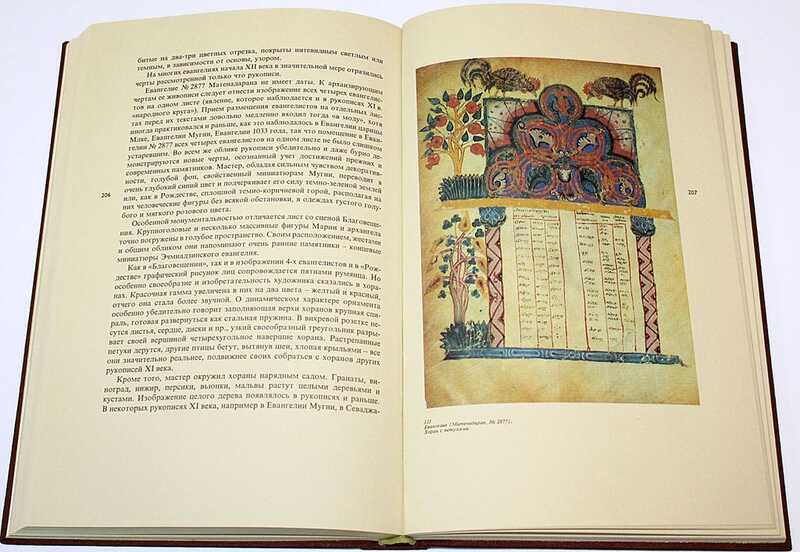 битые на два-три цветных отрезка, покрыты нитевидным светлым или
темным, в зависимости от основы, узором.
На многих евангелиях начала XII века в значительной мере отразились
черты рассмотренной только что рукописи.
Евангелие № 2877 Матенадарана не имеет даты. К архаизирующим
чертам ее живописи следует отнести изображение всех четырех евангелис-
тов на одном листе (явление, которое наблюдается и в рукописях XI в.
«народного круга»). Прием размещения евангелистов на отдельных лис-
тах перед их текстами довольно медленно входил тогда «в моду», хотя
иногда практиковался и раньше, как это наблюдалось в Евангелии царицы
Млке, Евангелии Мугни, Евангелии 1033 года, так что помещение в Еван-
гелии № 2877 всех четырех евангелистов на одном листе не было слишком
устаревшим. Во всем же облике рукописи убедительно и даже бурно де-
монстрируются новые черты, осознанный учет достижений прежних и
современных памятников. Мастер, обладая сильным чувством декоратив-
ности, голубой фон, свойственный миниатюрам Мугни, переводит в
очень глубокий синий цвет и подчеркивает его силу темно-зеленой землей
206
или, как в Рождестве, сплошной темно-коричневой горой, располагая на
них человеческие фигуры без всякой обстановки, в одеждах густого голу-
бого и мягкого розового цвета.
Особенной монументальностью отличается лист со сценой Благовеще-
ния. Крупноголовые и несколько массивные фигуры Марии и архангела
точно погружены в голубое пространство. Своим расположением, жестами
и общим обликом они напоминают очень ранние памятники – концевые
миниатюры Эчмиадзинского евангелия.
Как в «Благовещении», так и в изображении 4-х евангелистов и в «Рож-
дестве» графический рисунок лиц сопровождается пятнами румянца. Но
особенно своеобразие и изобретательность художника сказались в хора-
нах. Красочная гамма увеличена в них на два цвета – желтый и красный,
отчего она стала более звучной. О динамическом характере орнамента
особенно убедительно говорит заполняющая верхи хоранов крупная спи-
раль, готовая развернуться как стальная пружина. В вихревой розетке не-
сутся листья, сердце, диски и пр., узкий своеобразный треугольник разры-
вает своей вершиной четырехугольное навершие хорана. Растрепанные
петухи дерутся, другие птицы бегут, вытянув шеи, хлопая крыльями – все
они значительно реальнее, подвижнее своих собратьев с хоранов других
рукописей XI века.
Кроме того, мастер окружил хораны нарядным садом. Гранаты, ви-
ноград, инжир, персики, вьюнки, мальвы растут целыми деревьями и
кустами. Изображение целого дерева появлялось в рукописях и раньше.
В некоторых рукописях XI века, например в Евангелии Мугни, в Севаджа-
207
Евангелие (Матенадаран, № 2877).
Хоран с петухами